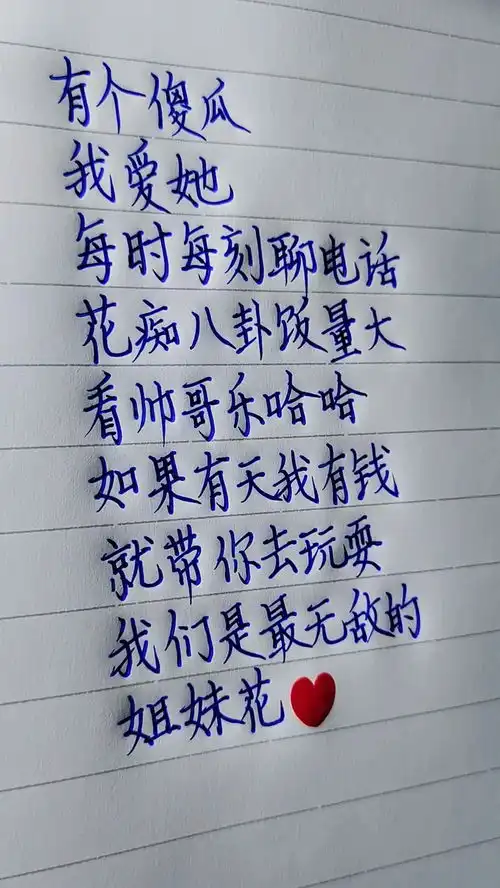 有个傻瓜
我爱她
每时每刻聊电话
花痴八卦饭量大
看帅哥乐哈哈
如果有天我有钱
就带你去玩耍
我们是最无敌的
姐妹花❤️